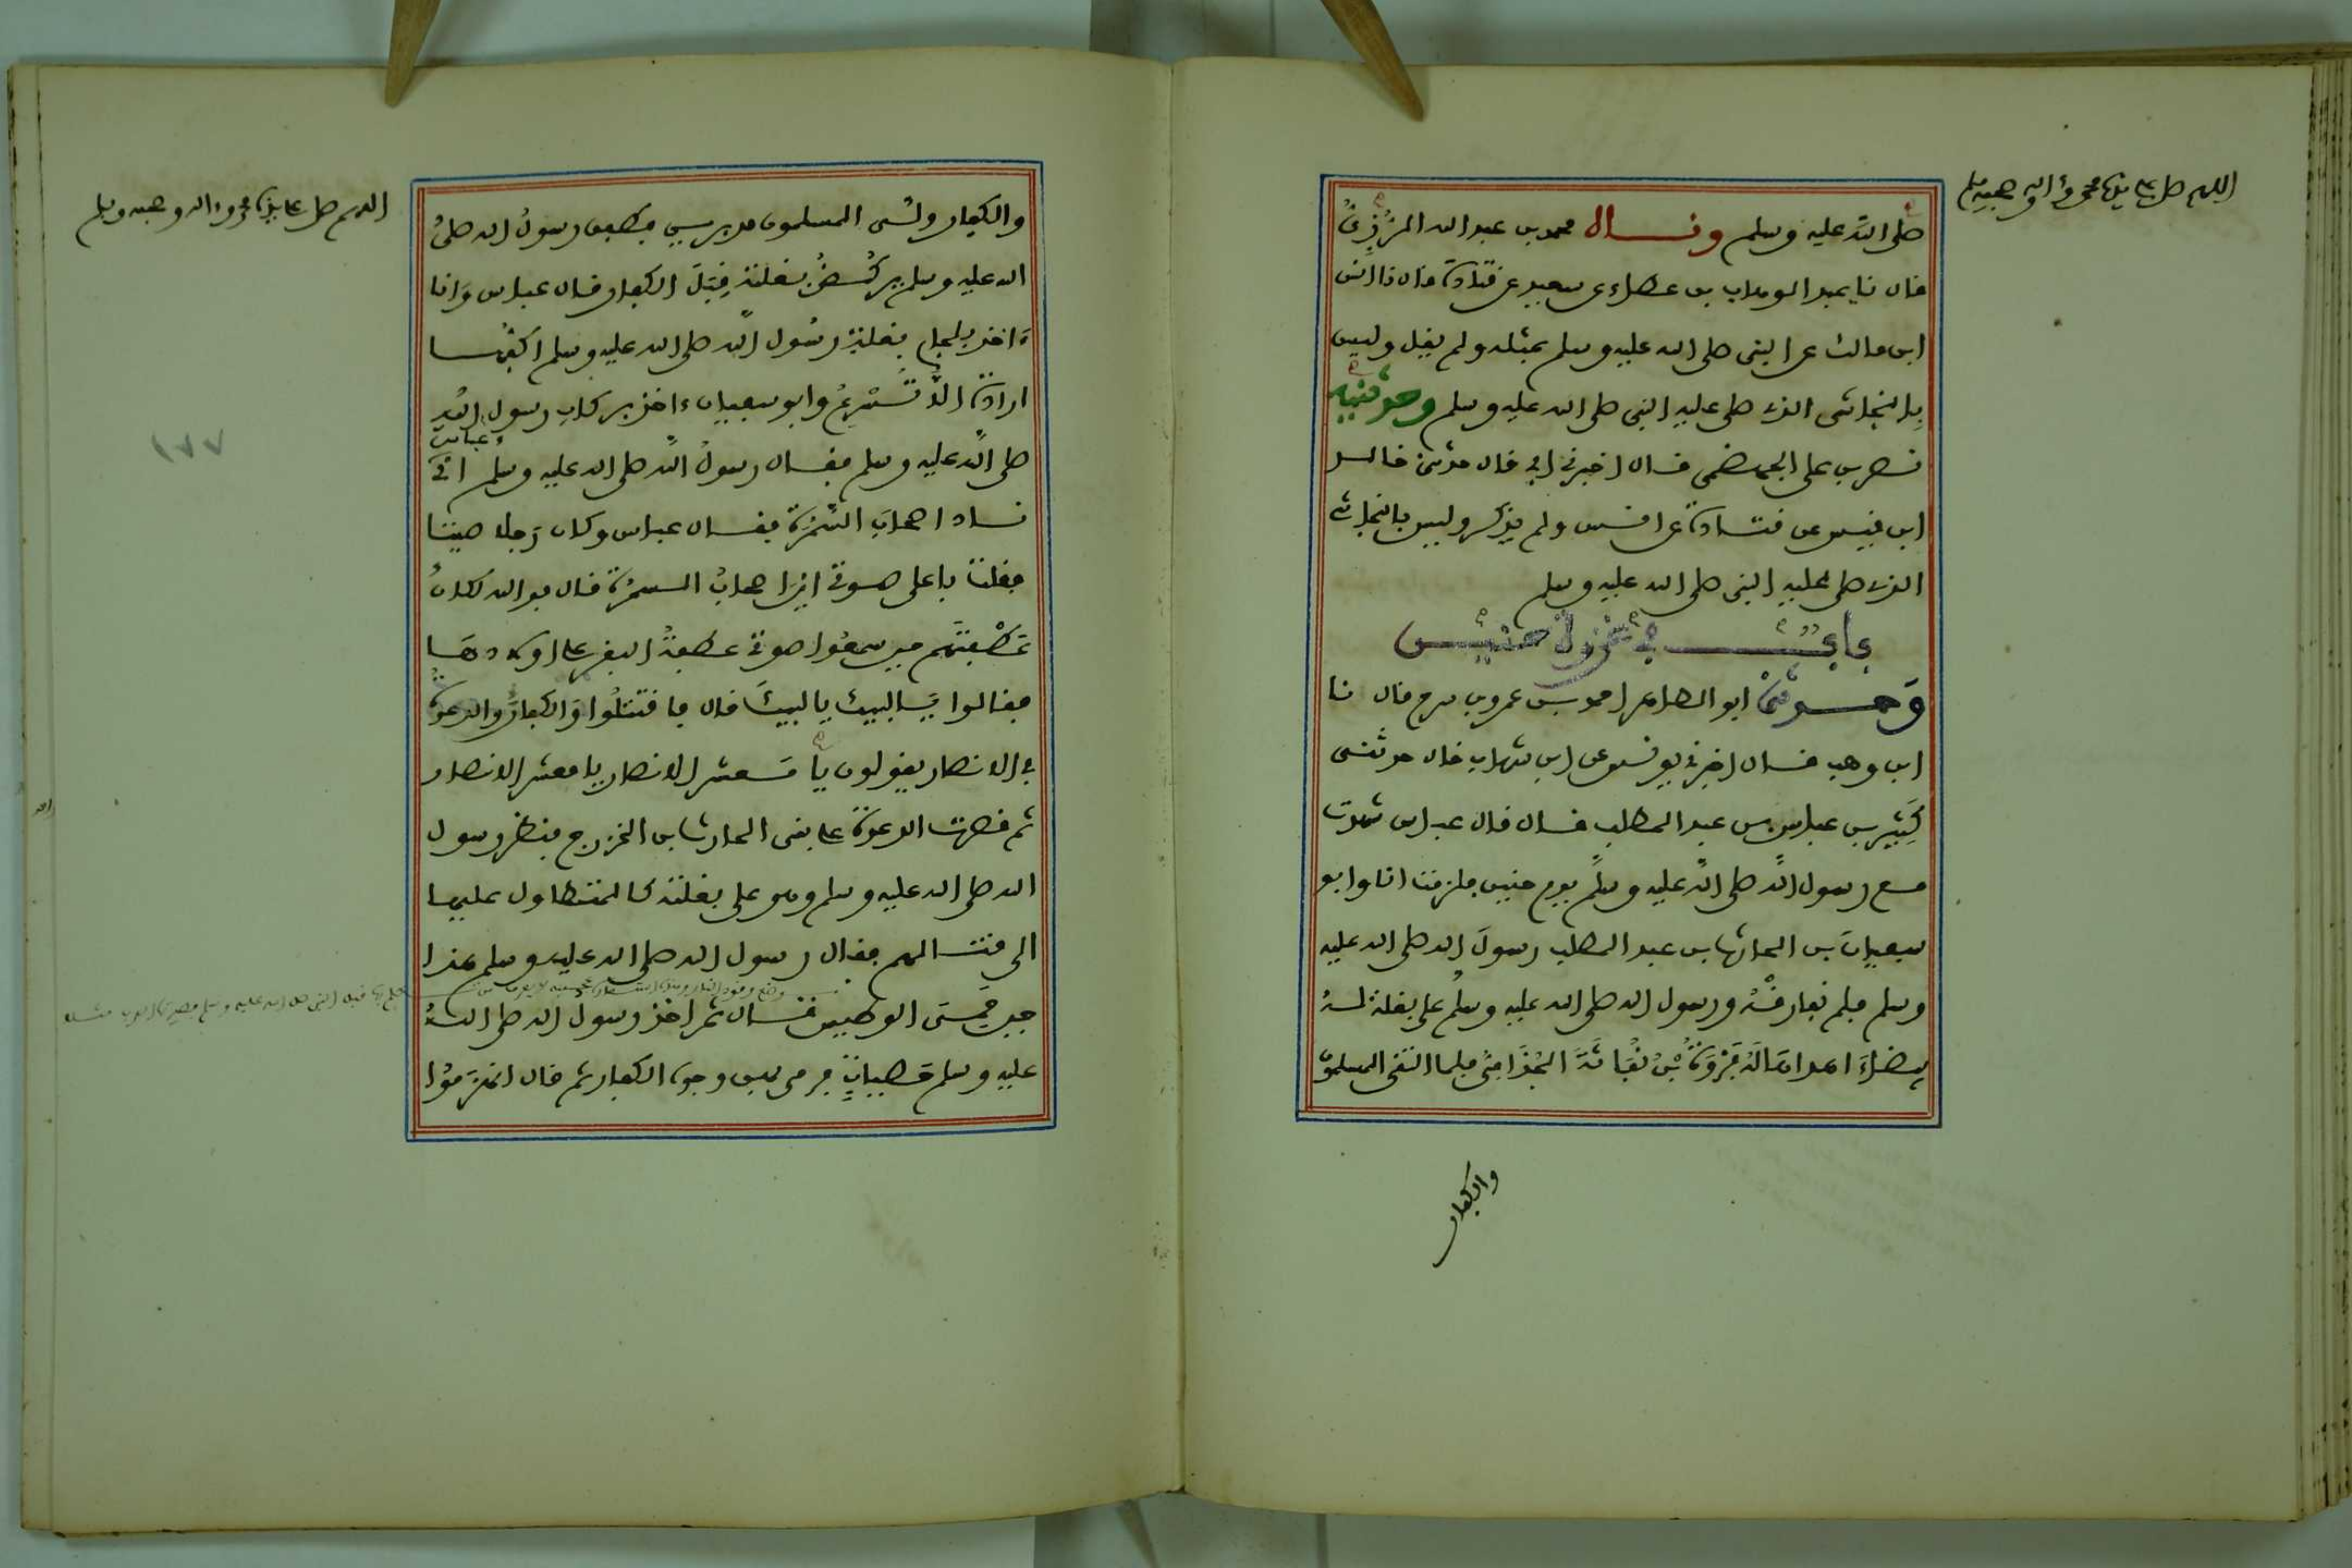 اللهم صل على سيدنا محمد وءاله وصحبه وسلم
صلى الله عليه وسلم وقال محمد بن عبد الله الرزي
قال نا عبد الوهاب بن عطاء عن سعيد عن قتادة قال نا انس
ابن مالك عن النبي صلى الله عليه وسلم بمثله ولم يقل وليس
بالنجاشي الذي صلى عليه النبي صلى الله عليه وسلم وحدثنيه
نصر بن علي الجهضمي قال اخبرني ابي قال حدثني خالد
ابن قيس عن قتادة عن انس ولم يذكر وليس بالنجاشي
الذي صلى عليه النبي صلى الله عليه وسلم
باب في غزوة حنين
وحدثني ابو الطاهر احمد بن عمرو بن سرح قال نا
ابن وهب قال اخبرني يونس عن ابن شهاب قال حدثني
كثير بن عباس بن عبد المطلب قال قال عباس شهدت
مع رسول الله صلى الله عليه وسلم يوم حنين فلزمت انا وابو
سفيان بن الحارث بن عبد المطلب رسول الله صلى الله عليه
وسلم فلم نفارقه ورسول الله صلى الله عليه وسلم على بغلة له
بيضاء اهداها له فروة بن نفاثة الجذامي فلما التقى المسلمون
والكفار
اللهم صل على سيدنا محمد وءاله وصحبه وسلم
والكفار ولى المسلمون مدبرين فطفق رسول الله صلى
الله عليه وسلم يركض بغلته قبل الكفار قال عباس وانا
ءاخذ بلجام بغلة رسول الله صلى الله عليه وسلم اكفها
ارادة الا تسرع وابو سفيان ءاخذ بركاب رسول الله
صلى الله عليه وسلم فقال رسول الله صلى الله عليه وسلم اي عباس
ناد اصحاب السمرة فقال عباس وكان رجلا صيتا
فقلت باعلى صوتي اين اصحاب السمرة قال فوالله لكان
عطفتهم حين سمعوا صوتي عطفة البقر على اولادها
فقالوا يا لبيك يا لبيك قال فاقتتلوا والكفار والدعوة
في الانصار يقولون يا معشر الانصار يا معشر الانصار
ثم قصرت الدعوة على بني الحارث بن الخزرج فنظر رسول
الله صلى الله عليه وسلم وهو على بغلته كالمتطاول عليها
الى قتالهم فقال رسول الله صلى الله عليه وسلم هذا
حين حمي الوطيس قال ثم اخذ رسول الله صلى الله
عليه وسلم حصيات فرمى بهن وجوه الكفار ثم قال انهزموا
١٧٧